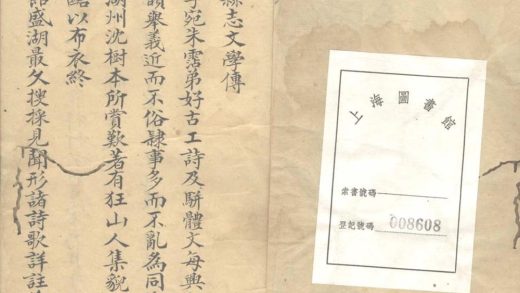 上海圖書館
索書號碼
登記號碼 008608
縣志文學傳
字宛朱霑弟好古工詩及駢體文每與
舉義近而不俗隸事多而不亂為同
湖州沈樹本所賞歎著有狂山人集貌
以布衣終
館盛湖最久搜採見聞形諸詩歌詳註